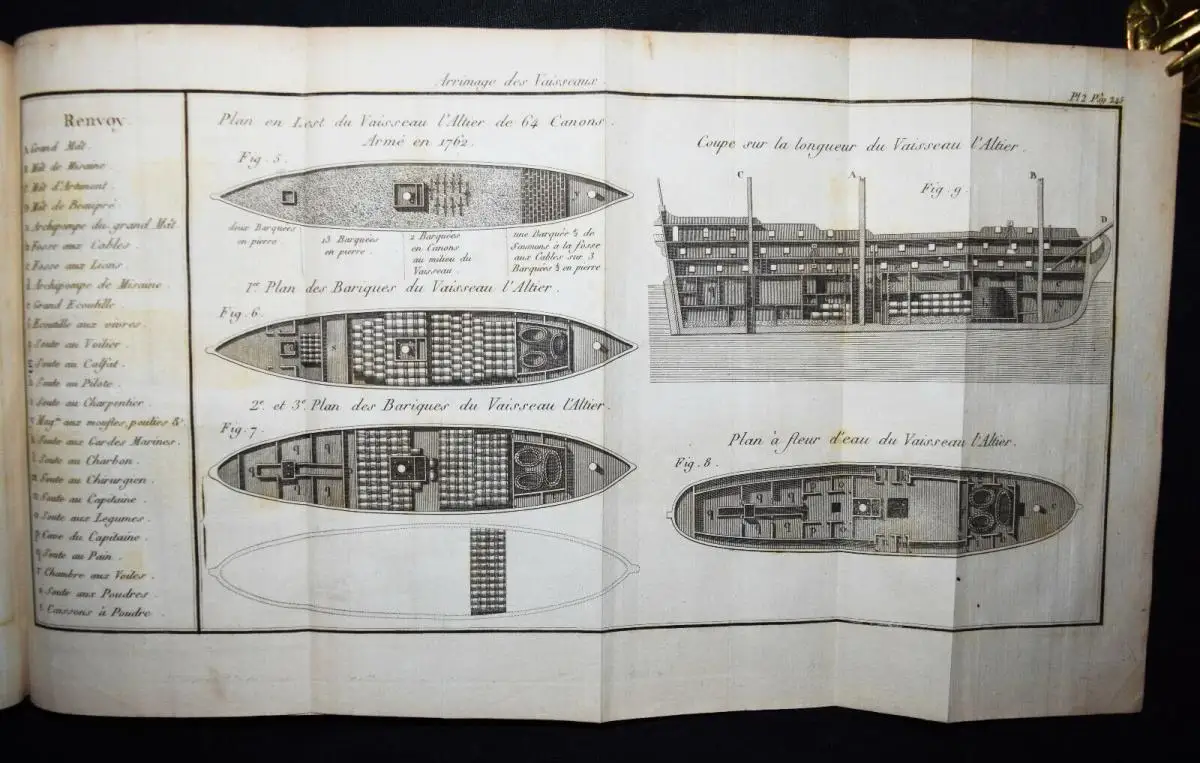 Arrimage des Vaisseaux.
Pl 2. Pag. 245
Renvoy.
Grand Mât.
Mât de Misaine.
Mât d'Artimont.
Mât de Beaupré
Archipompe du grand Mât.
Fosse aux Cables.
Fosse aux Lions.
Archipompe de Misaine.
Grand Ecoutille.
Ecoutille aux vivres.
Soute au Voilier.
Soute au Calfat.
Soute au Pilote.
Soute au Charpentier.
Mag.ⁿ aux moufles, poulies &ᶜ.
Soute aux Gar-des Marines.
Soute au Charbon.
Soute au Chirurgien.
Soute au Capitaine.
Soute aux Legumes.
Cave du Capitaine.
q Soute au Pain.
r Chambre aux Voiles.
Soute aux Poudres.
Caissons à Poudre.
Plan en Lest du Vaisseau l'Altier de 64 Canons.
Armé en 1762.
Fig. 5.
deux Barquées
en pierre.
13 Barquées
en pierre.
2 Barquées
en Canons
au milieu du
Vaisseau.
une Barquée ½ de
Saumons à la fosse
aux Cables sur 3
Barquées ½ en pierre
1ᵉʳ Plan des Bariques du Vaisseau l'Altier.
Fig. 6.
2ᵉ. et 3ᵉ Plan des Bariques du Vaisseau l'Altier.
Fig. 7.
Coupe sur la longueur du Vaisseau l'Altier.
C
A
B
D
Fig. 9.
Plan à fleur d'eau du Vaisseau l'Altier.
Fig. 8.